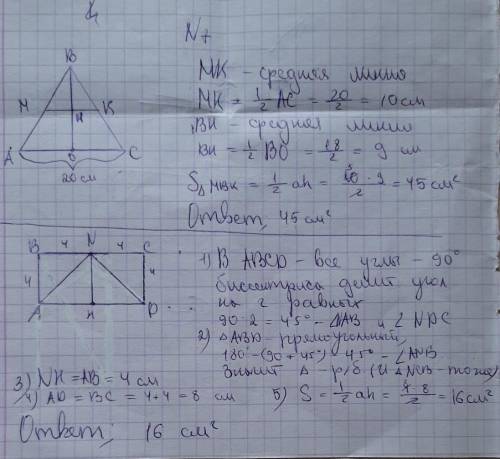 N
B
M
K
H
A
O
C
20 см
МК - средняя линия
МК = 1/2 АС = 20/2 = 10 см
ВН - средняя линия
ВН = 1/2 ВО = 18/2 = 9 см
S△МВК = 1/2 ah = 10·9/2 = 45 см²
Ответ: 45 см²
B 4 N 4 C
4 4
A H D
1) В ABCD - все углы - 90°
биссектриса делит угол
на 2 равных
90:2 = 45° - ∠NAB и ∠NDC
2) △ABN - прямоугольный,
180° - (90 + 45°) = 45° - ∠ANB
Значит △ - р/б (И △ - тоже)
3) NH = AB = 4 см
4) AD = BC = 4+4 = 8 см
5) S = 1/2 ah = 4·8/2 = 16 см²
Ответ: 16 см²